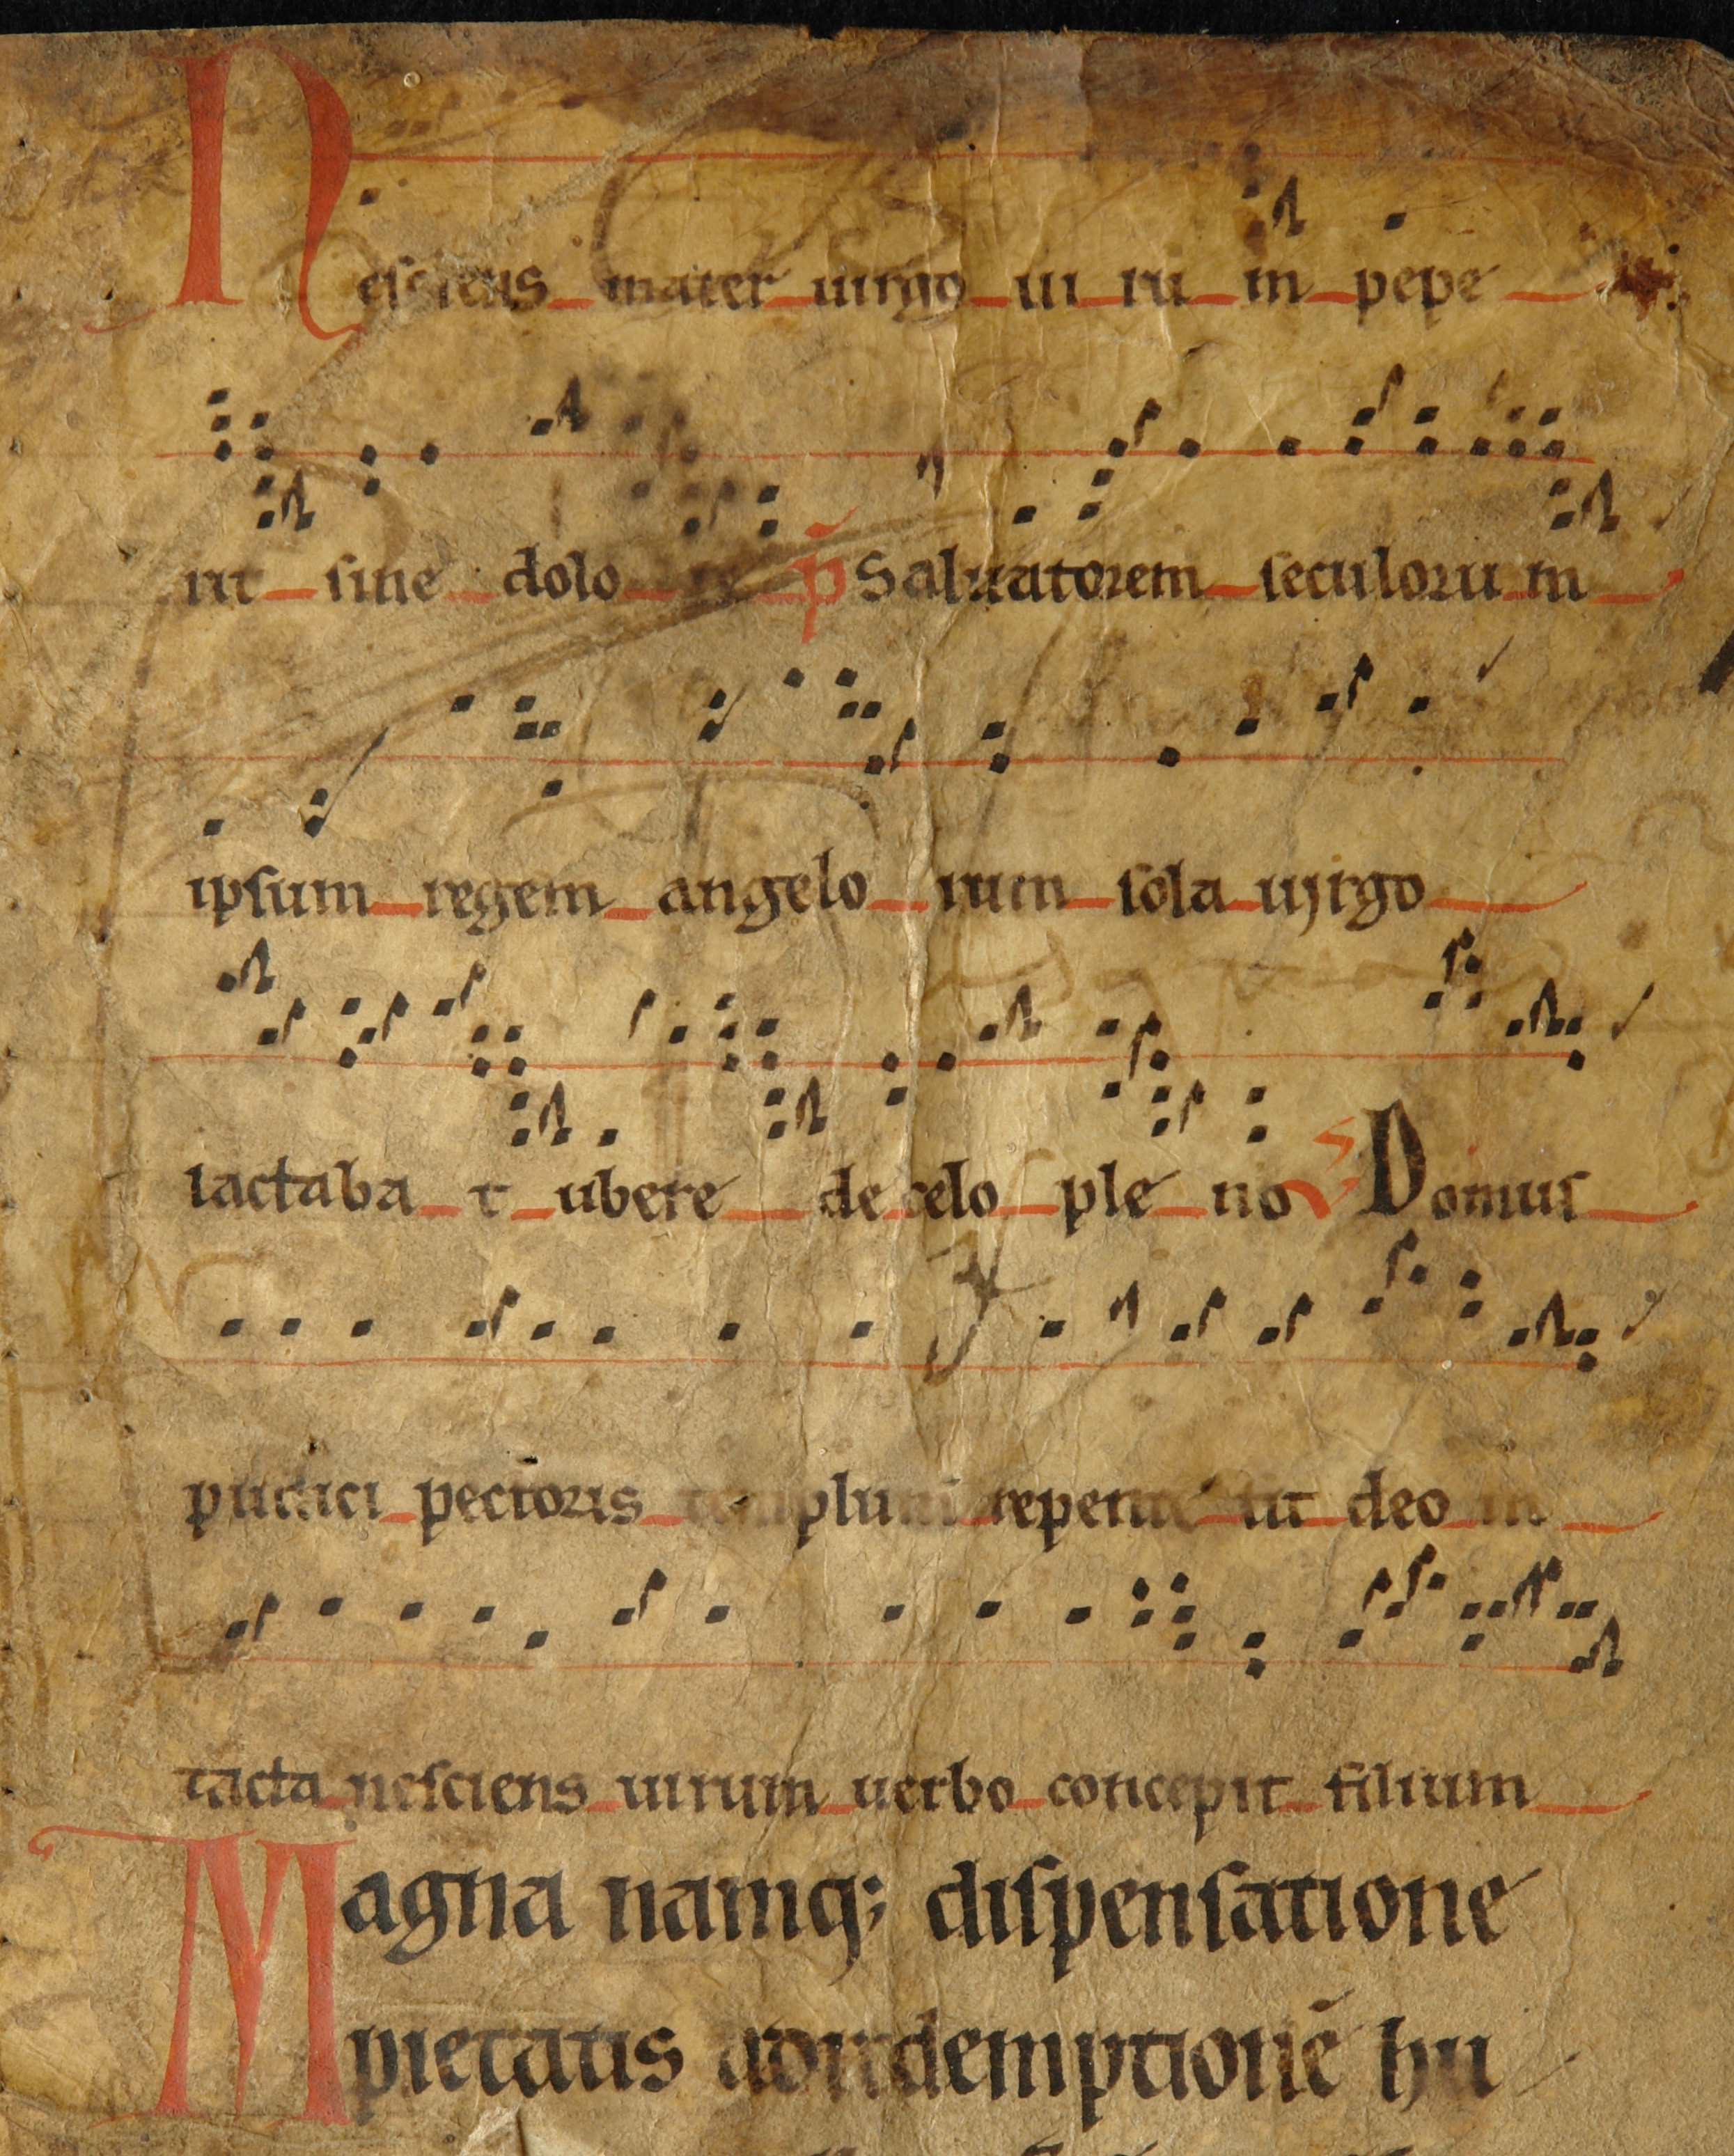 Nesciens mater uirgo ui ru m pepe
rit sine dolo re p Saluatorem seculoru m
ipsum regem angelo rum sola uirgo
lactaba t ubere de celo ple no V Domus
pudici pectoris templum repente fit deo in
tacta nesciens uirum uerbo concepit filium
Magna namq; dispensatione
pietatis ad redemptionē hu